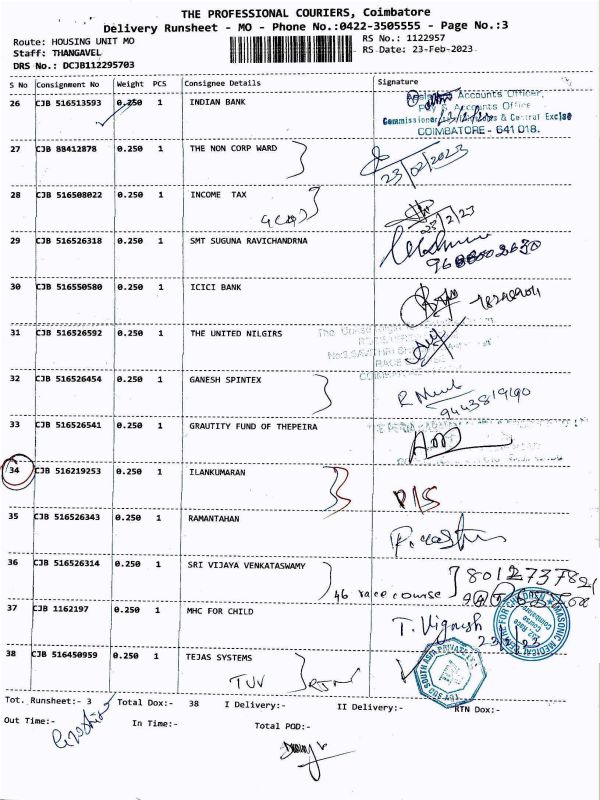 THE PROFESSIONAL COURIERS, Coimbatore
Delivery Runsheet - MO - Phone No.:0422-3505555 - Page No.:3
Route: HOUSING UNIT MO
RS No.: 1122957
Staff: THANGAVEL
RS Date: 23-Feb-2023
DRS No.: DCJB112295703
S No Consignment No Weight PCS Consignee Details Signature
26 CJB 516513593 0.250 1 INDIAN BANK
Accounts Officer,
Accounts Office
& Central Excise
COIMBATORE - 641 018.
27 CJB 88412878 0.250 1 THE NON CORP WARD
23/02/2023
28 CJB 516508022 0.250 1 INCOME TAX
23/2/23
29 CJB 516526318 0.250 1 SMT SUGUNA RAVICHANDRNA
30 CJB 516550580 0.250 1 ICICI BANK
31 CJB 516526592 0.250 1 THE UNITED NILGIRS
32 CJB 516526454 0.250 1 GANESH SPINTEX
9443819190
33 CJB 516526541 0.250 1 GRAUTITY FUND OF THEPEIRA
34 CJB 516219253 0.250 1 ILANKUMARAN
D/S
35 CJB 516526343 0.250 1 RAMANTAHAN
36 CJB 516526314 0.250 1 SRI VIJAYA VENKATASWAMY
46 race course
37 CJB 1162197 0.250 1 MHC FOR CHILD
T. Vignesh
23/2/23
38 CJB 516450959 0.250 1 TEJAS SYSTEMS
TUV
Tot. Runsheet:- 3 Total Dox:- 38 I Delivery:- II Delivery:- RTN Dox:-
Out Time:- In Time:- Total POD:-